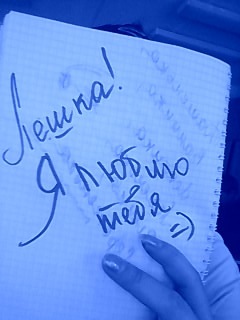 Лешка!
Я люблю
тебя =)